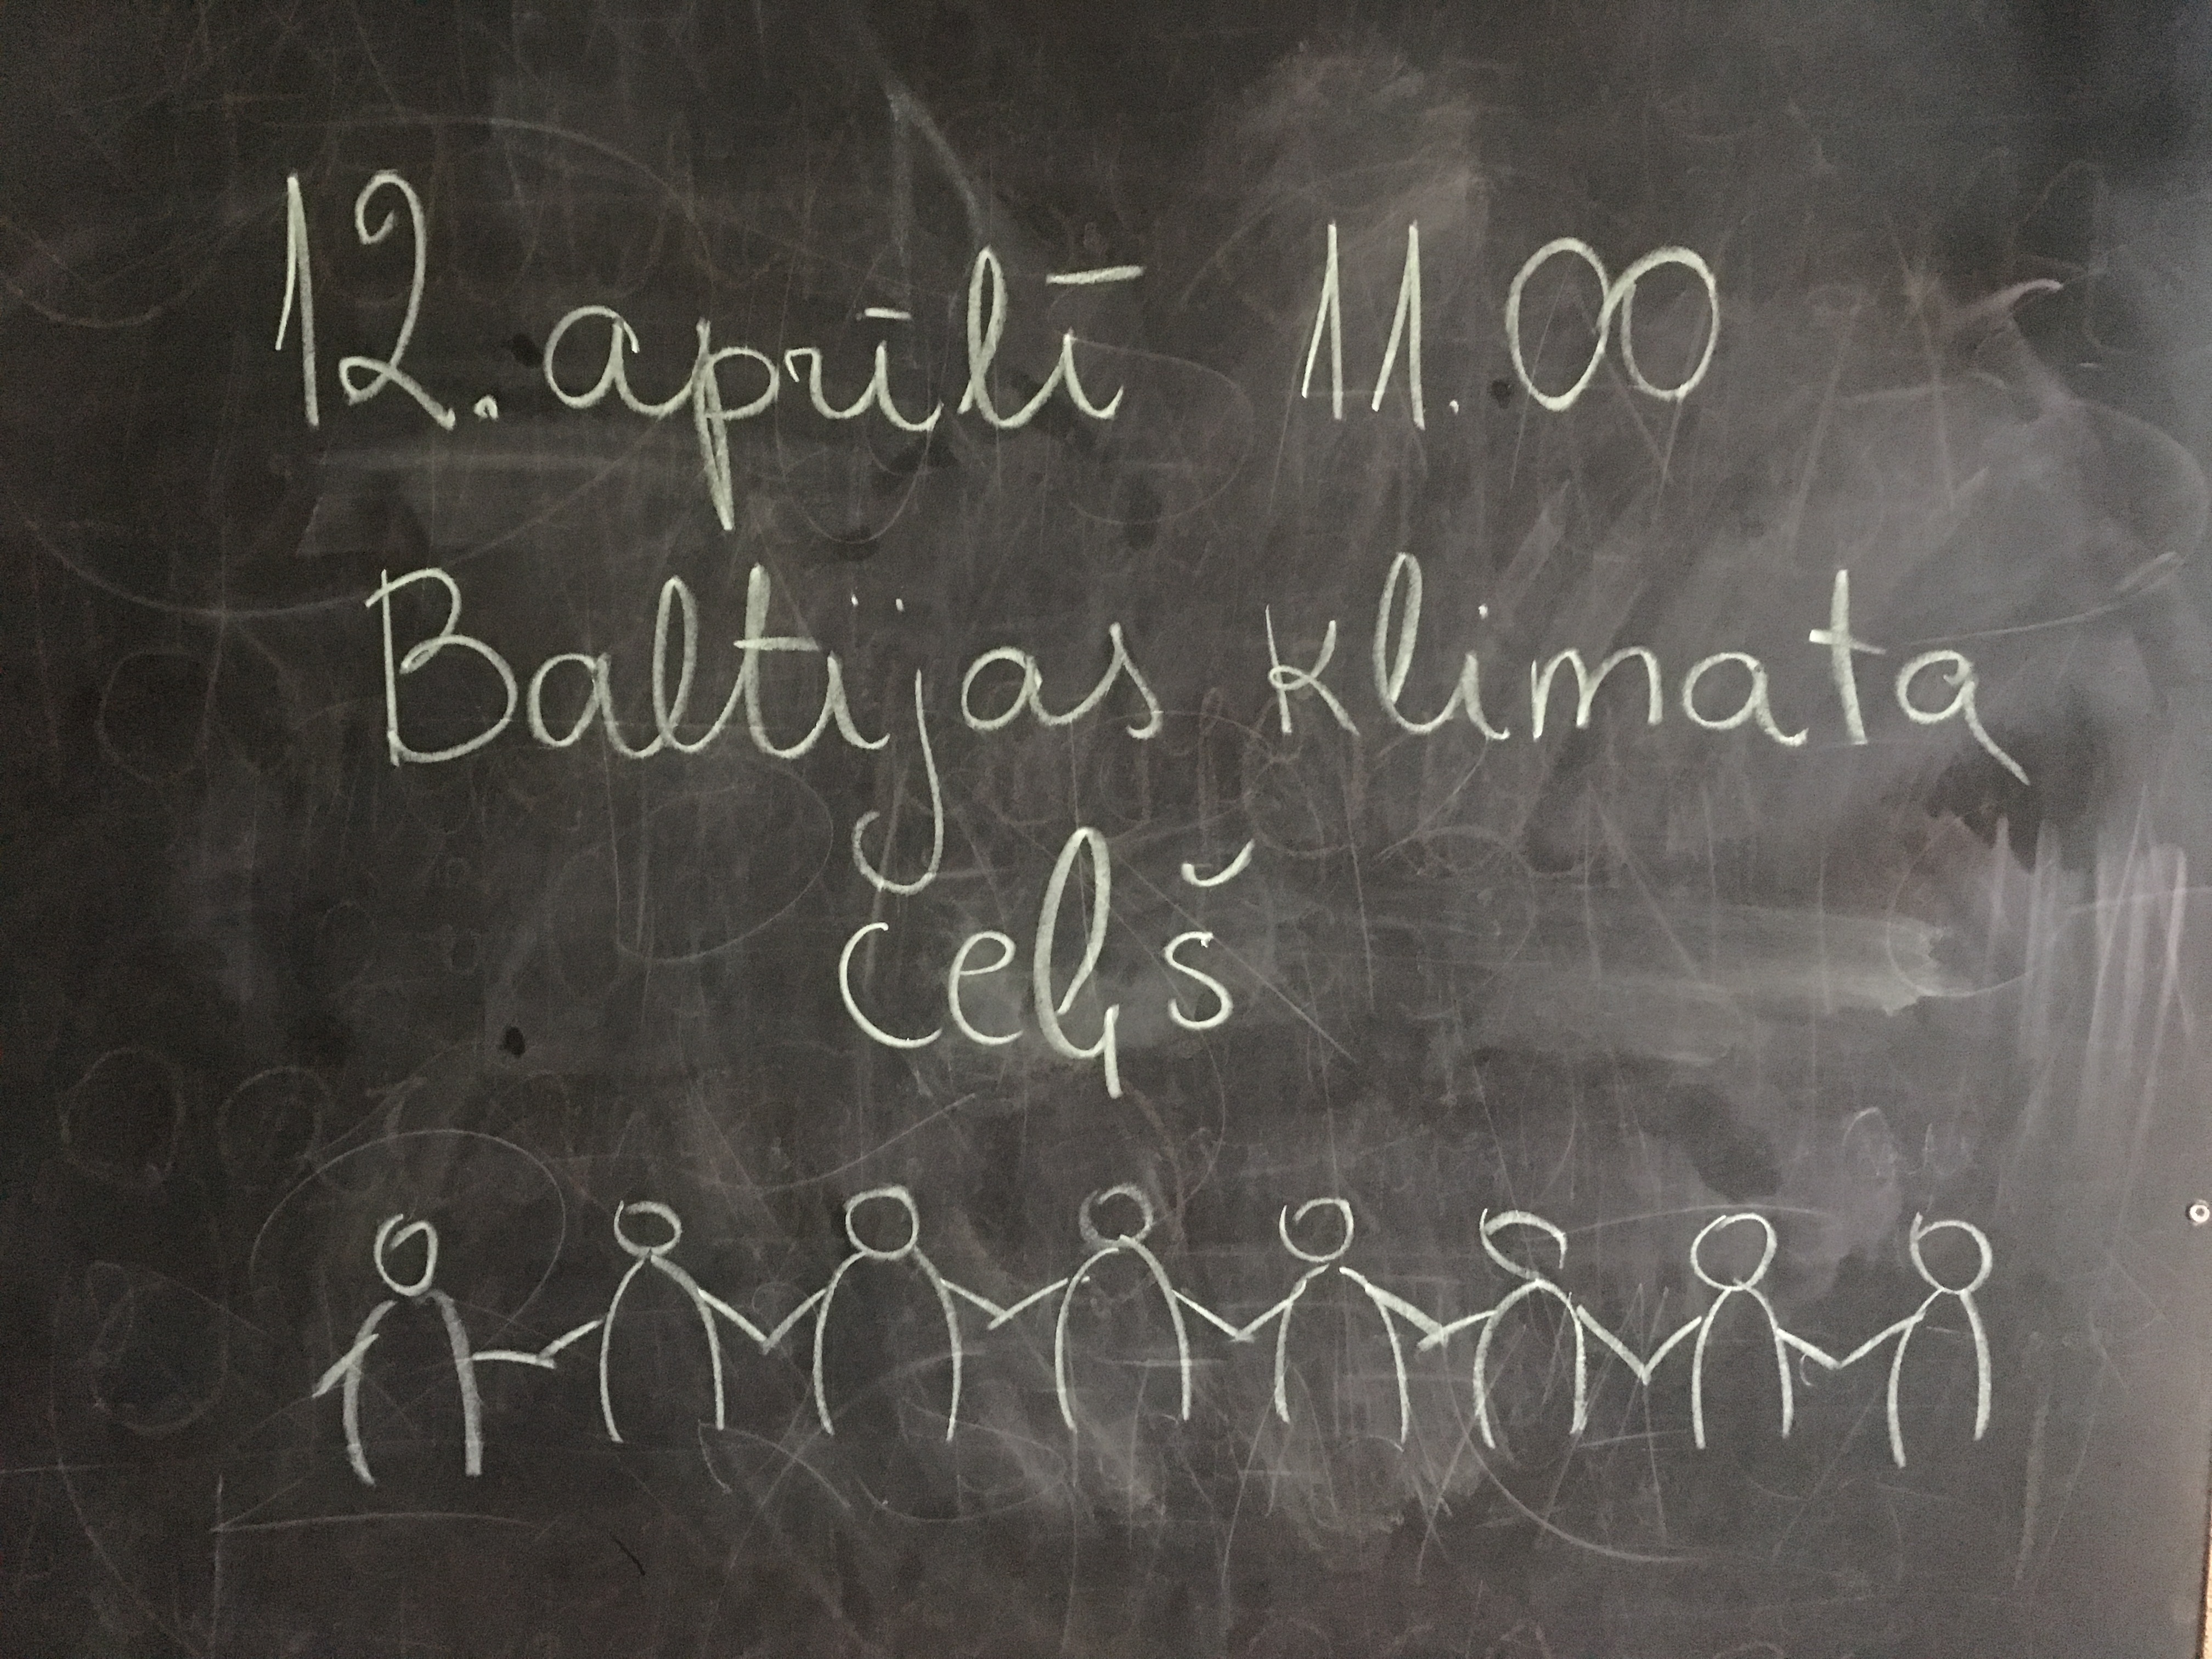 12. aprīlī 11.00
Baltijas klimata
ceļš